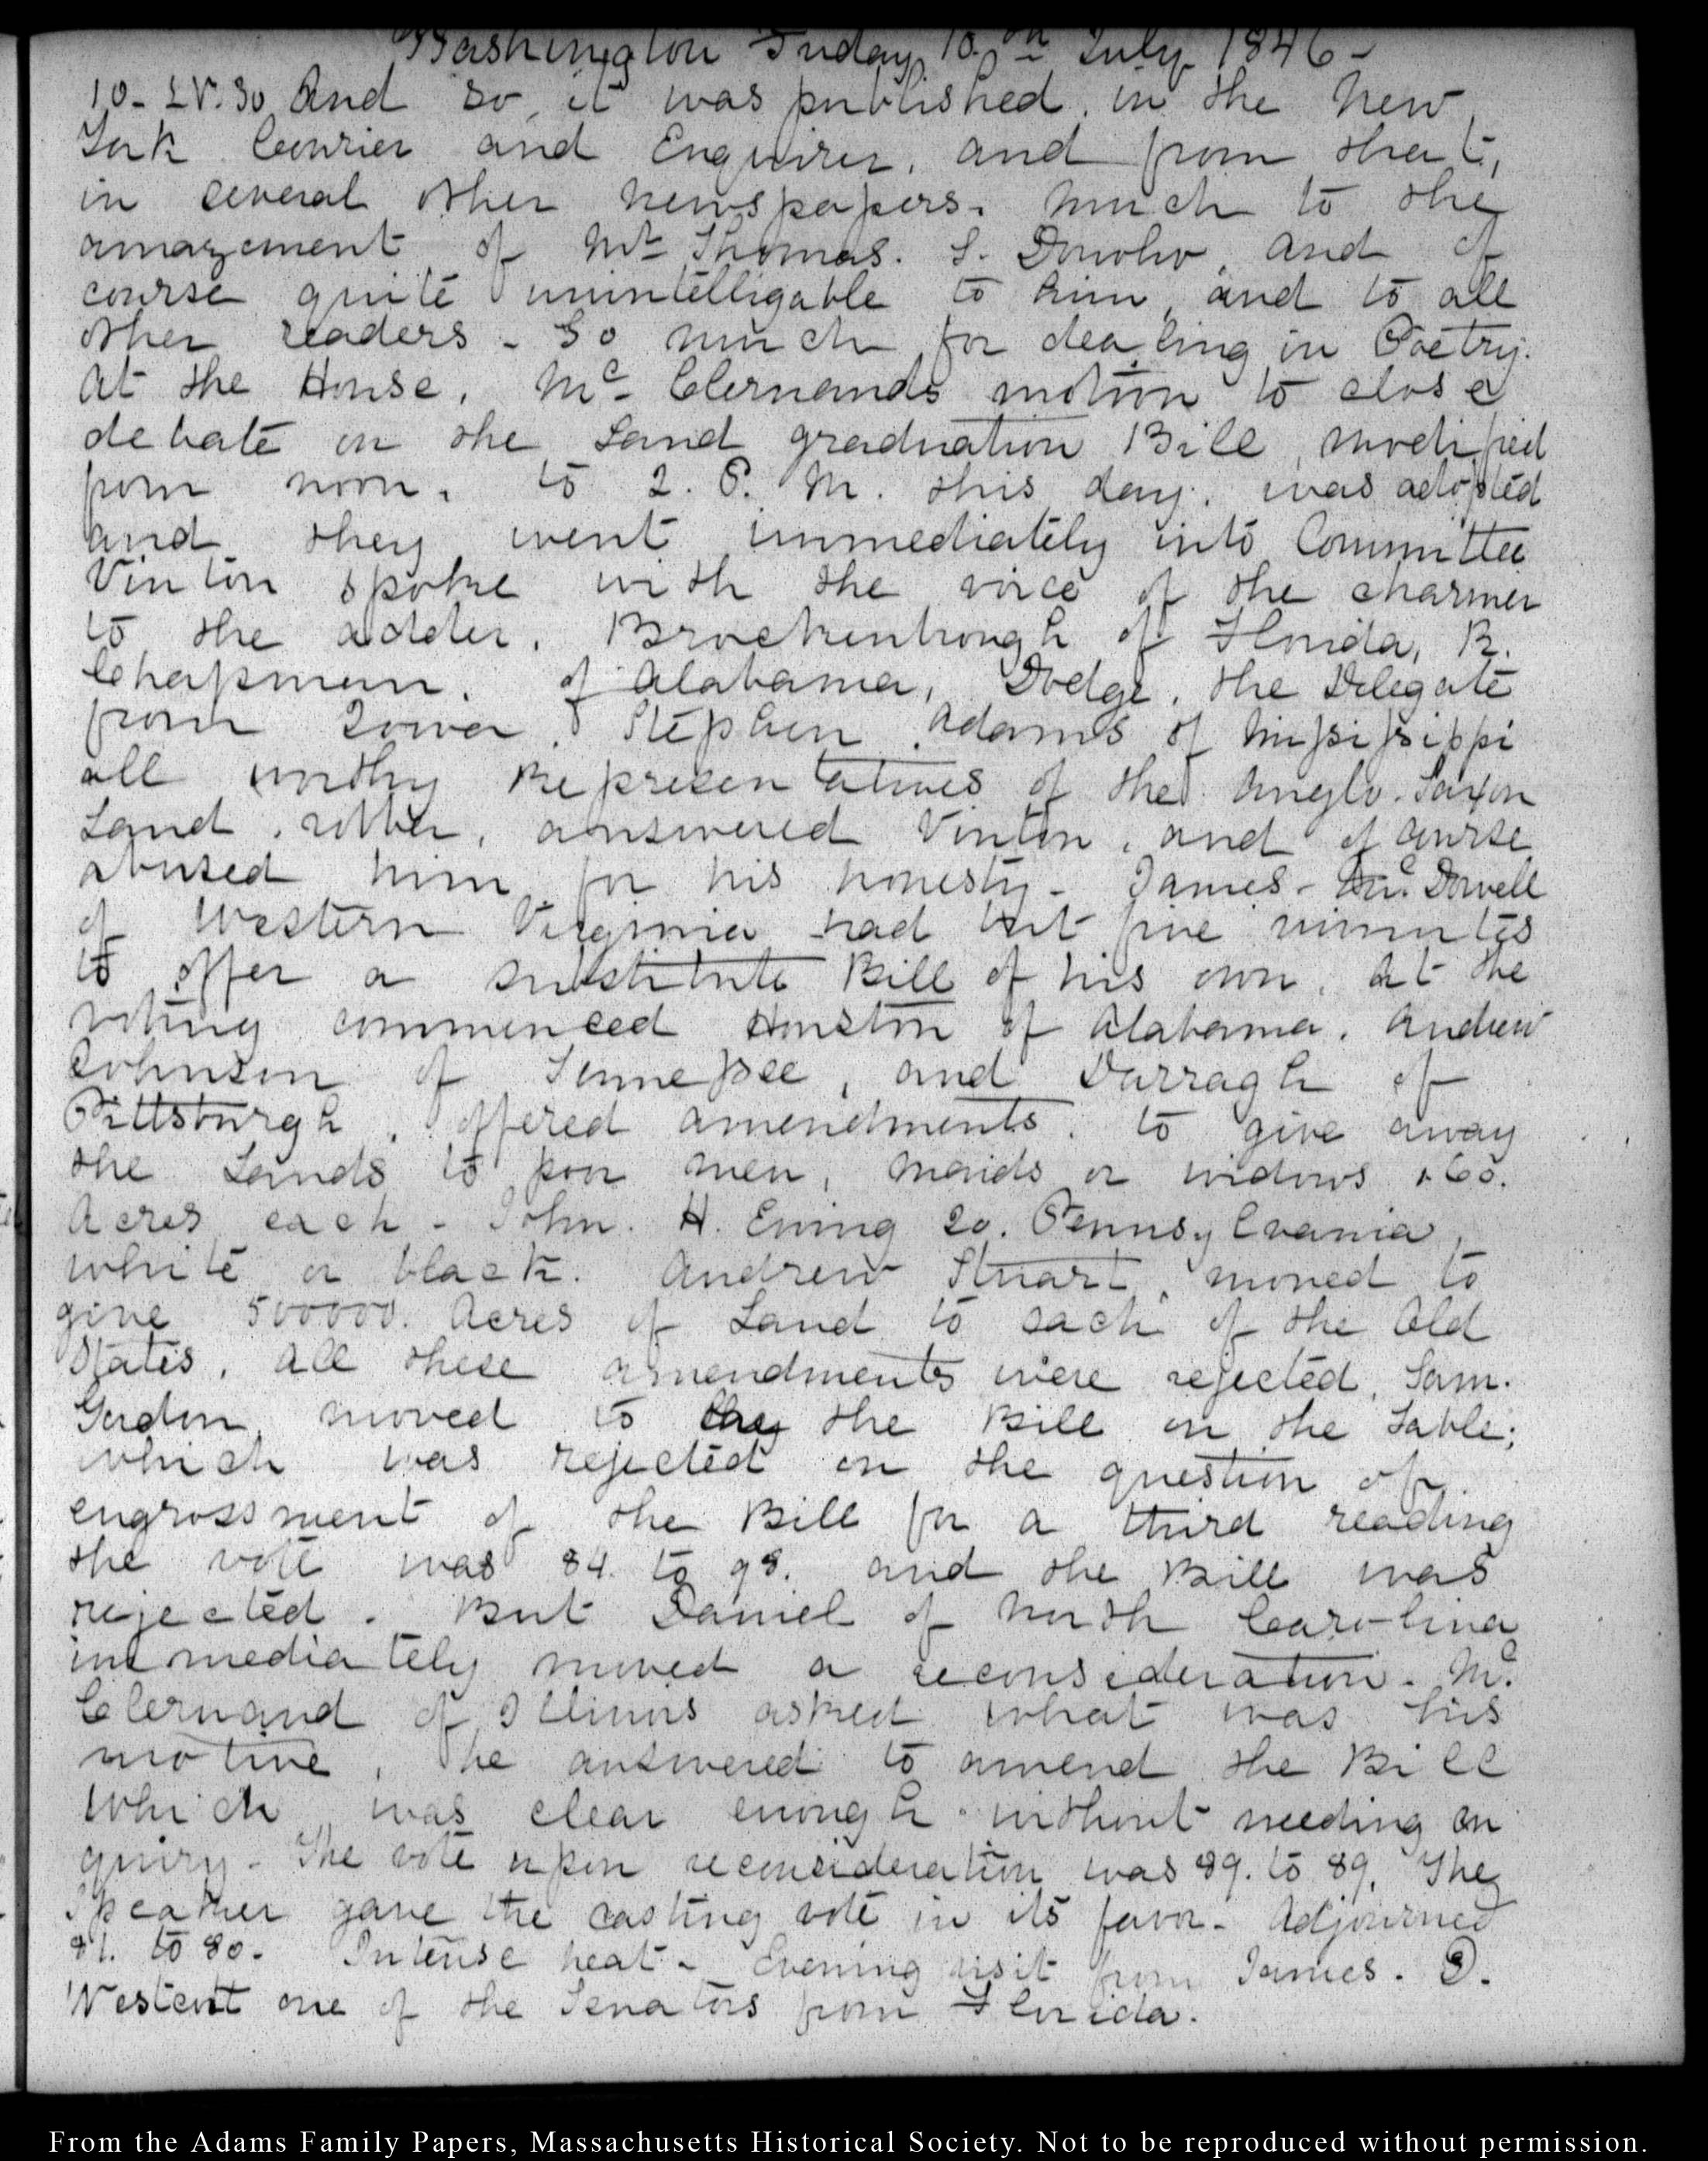 Washington Friday 10.th July 1846-
10- IV.30 And so it was published in the New
York Courier and Enquirer, and from that,
in several other newspapers. much to the
amazement of Mr Thomas. S. Donoho, and of
course quite unintelligable to him, and to all
other readers - So much for dealing in Poetry.
At the House, Mc- Clernands motion to close
debate on the Land graduation Bill, modified
from noon, to 2. P. M. this day, was adopted
and they went immediately into Committee
Vinton spoke with the voice of the charmer
to the adder. Brockenbrough of Florida, R.
Chapman, of Alabama, Dodge, the Delegate
from Iowa, Stephen Adams of Mississippi
all worthy Representatives of the Anglo-Saxon
Land robber, answered Vinton, and of course
abused him for his honesty - James - McDowell
of Western Virginia had but five minutes
to offer a substitute Bill of his own, at the
voting commenced Houston of Alabama, Andrew
Johnson of Tennessee, and Darragh of
Pittsburgh, offered amendments, to give away
the Lands to poor men, maids or widows 160.
Acres each - John. H. Ewing 20. Pennsylvania,
white or black. Andrew Stuart, moved to
give 500000. Acres of Land to each of the Old
States, all these amendments were rejected, Sam.
Gordon moved to lay the Bill on the Table;
which was rejected on the question of
engrossment of the Bill for a third reading
the vote was 84. to 98. and the Bill was
rejected. But Daniel of North Carolina
immediately moved a reconsideration - Mc.
Clernand of Illinois asked what was his
motive, he answered to amend the Bill
which was clear enough without needing en
quiry - The vote upon reconsideration was 89. to 89, The
Speaker gave the casting vote in its favor - Adjourned
81. to 80. Intense heat - Evening visit from James. D.
Westcott one of the Senators from Florida.
From the Adams Family Papers, Massachusetts Historical Society. Not to be reproduced without permission.